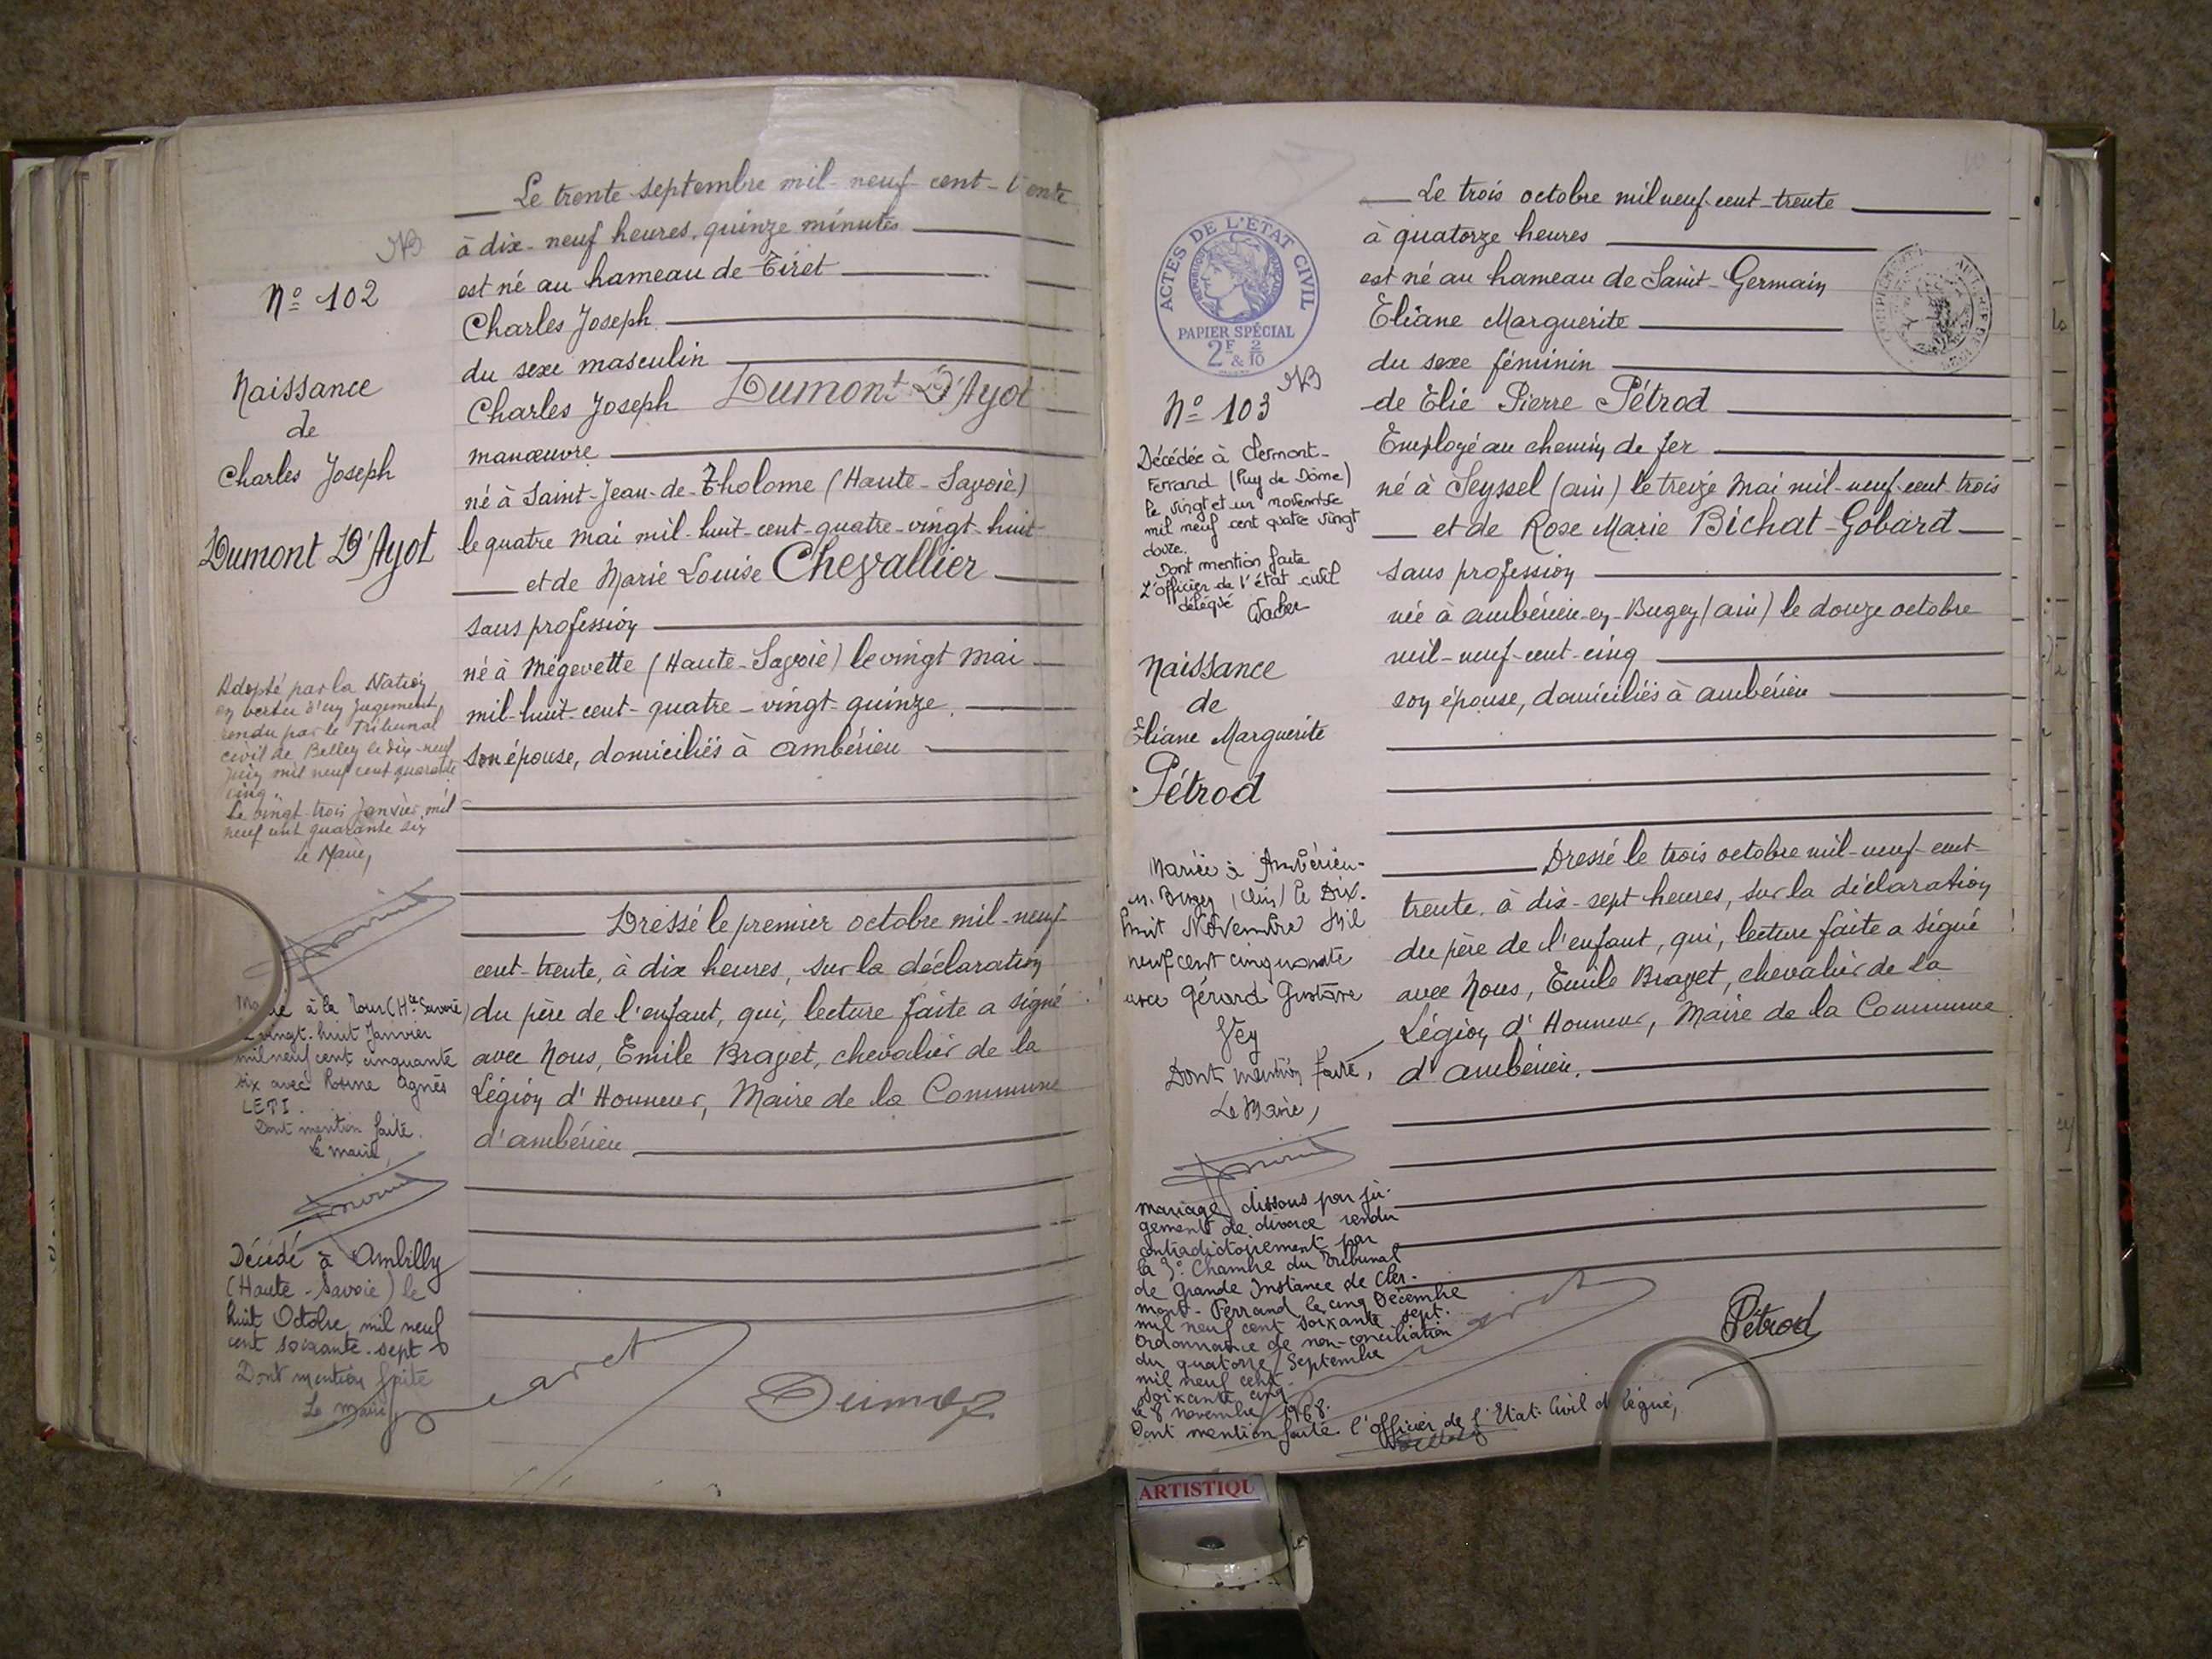 Le trente septembre mil-neuf-cent-trente
à dix-neuf heures, quinze minutes
est né au hameau de Tiret
Charles Joseph
du sexe masculin
Charles Joseph Dumont D'Ayot
manœuvre
né à Saint-Jean-de-Tholome (Haute-Savoie)
le quatre mai mil-huit-cent-quatre-vingt-huit
et de Marie Louise Chevallier
sans profession
né à Mégevette (Haute-Savoie) le vingt mai
mil-huit-cent-quatre-vingt-quinze.
son épouse, domiciliés à ambérieu
Dressé le premier octobre mil-neuf
cent-trente, à dix heures, sur la déclaration
du père de l'enfant, qui, lecture faite a signé
avec Nous, Emile Bravet, chevalier de la
Légion d'Honneur, Maire de la Commune
d'ambérieu
NB
Nº 102
Naissance
de
Charles Joseph
Dumont D'Ayot
Adopté par la Nation
en vertu d'un jugement
rendu par le Tribunal
civil de Belley le dix-neuf
juin mil neuf cent quarante
cinq
Le vingt-trois Janvier mil
neuf cent quarante six
Le Maire,
à la Tour (Hte Savoie)
vingt-huit Janvier
mil neuf cent cinquante
six avec Rosine Agnès
LETI.
Dont mention faite.
Le maire,
Décédé à Ambilly
(Haute-Savoie) le
huit Octobre mil neuf
cent soixante-sept
Dont mention faite
Le maire
Le trois octobre mil neuf-cent-trente
à quatorze heures
est né au hameau de Saint-Germain
Eliane Marguerite
du sexe féminin
de Elie Pierre Pétrod
Employé au chemin de fer
né à Seyssel (ain) le treize Mai mil-neuf-cent-trois
et de Rose Marie Bichat-Gobard
sans profession
née à ambérieu-en-Bugey (ain) le douze octobre
mil-neuf-cent-cinq
son épouse, domiciliés à ambérieu
Dressé le trois octobre mil-neuf-cent-
trente, à dix-sept heures, sur la déclaration
du père de l'enfant, qui, lecture faite a signé
avec Nous, Emile Bravet, chevalier de la
Légion d'Honneur, Maire de la Commune
d'ambérieu.
Pétrod
ACTES DE L'ETAT CIVIL
PAPIER SPÉCIAL
2F & 2/10
NB
Nº 103
Décédée à Clermont-
Ferrand (Puy de Dôme)
le vingt et un novembre
mil neuf cent quatre vingt
douze.
Dont mention faite
L'officier de l'état civil
délégué
Naissance
de
Eliane Marguerite
Pétrod
Mariée à Ambérieu-
en-Bugey (Ain) le Dix-
huit Novembre Mil
neuf cent cinquante
avec Gérard Gustave
Vey
Dont mention faite,
Le Maire,
Mariage dissous par ju-
gement de divorce rendu
contradictoirement par
la 3e Chambre du Tribunal
de Grande Instance de Cler-
mont-Ferrand le cinq Décembre
mil neuf cent soixante sept.
Ordonnance de non-conciliation
du quatorze Septembre
mil neuf cent
soixante cinq
le 8 novembre 1968.
Dont mention faite. l'officier de l'Etat Civil délégué,
ARTISTIQU